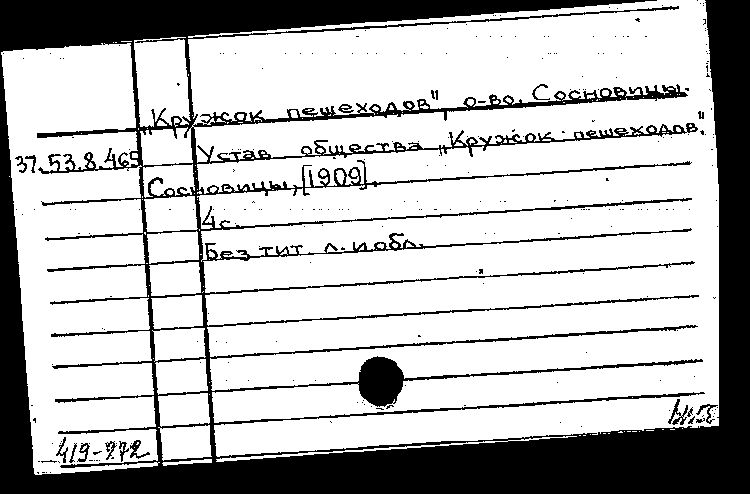 „Кружок пешеходов", о-во. Сосновицы.
37.53.8.465 Устав общества „Кружок пешеходов".
Сосновицы, [1909].
4 с.
Без тит. л. и обл.
419-272